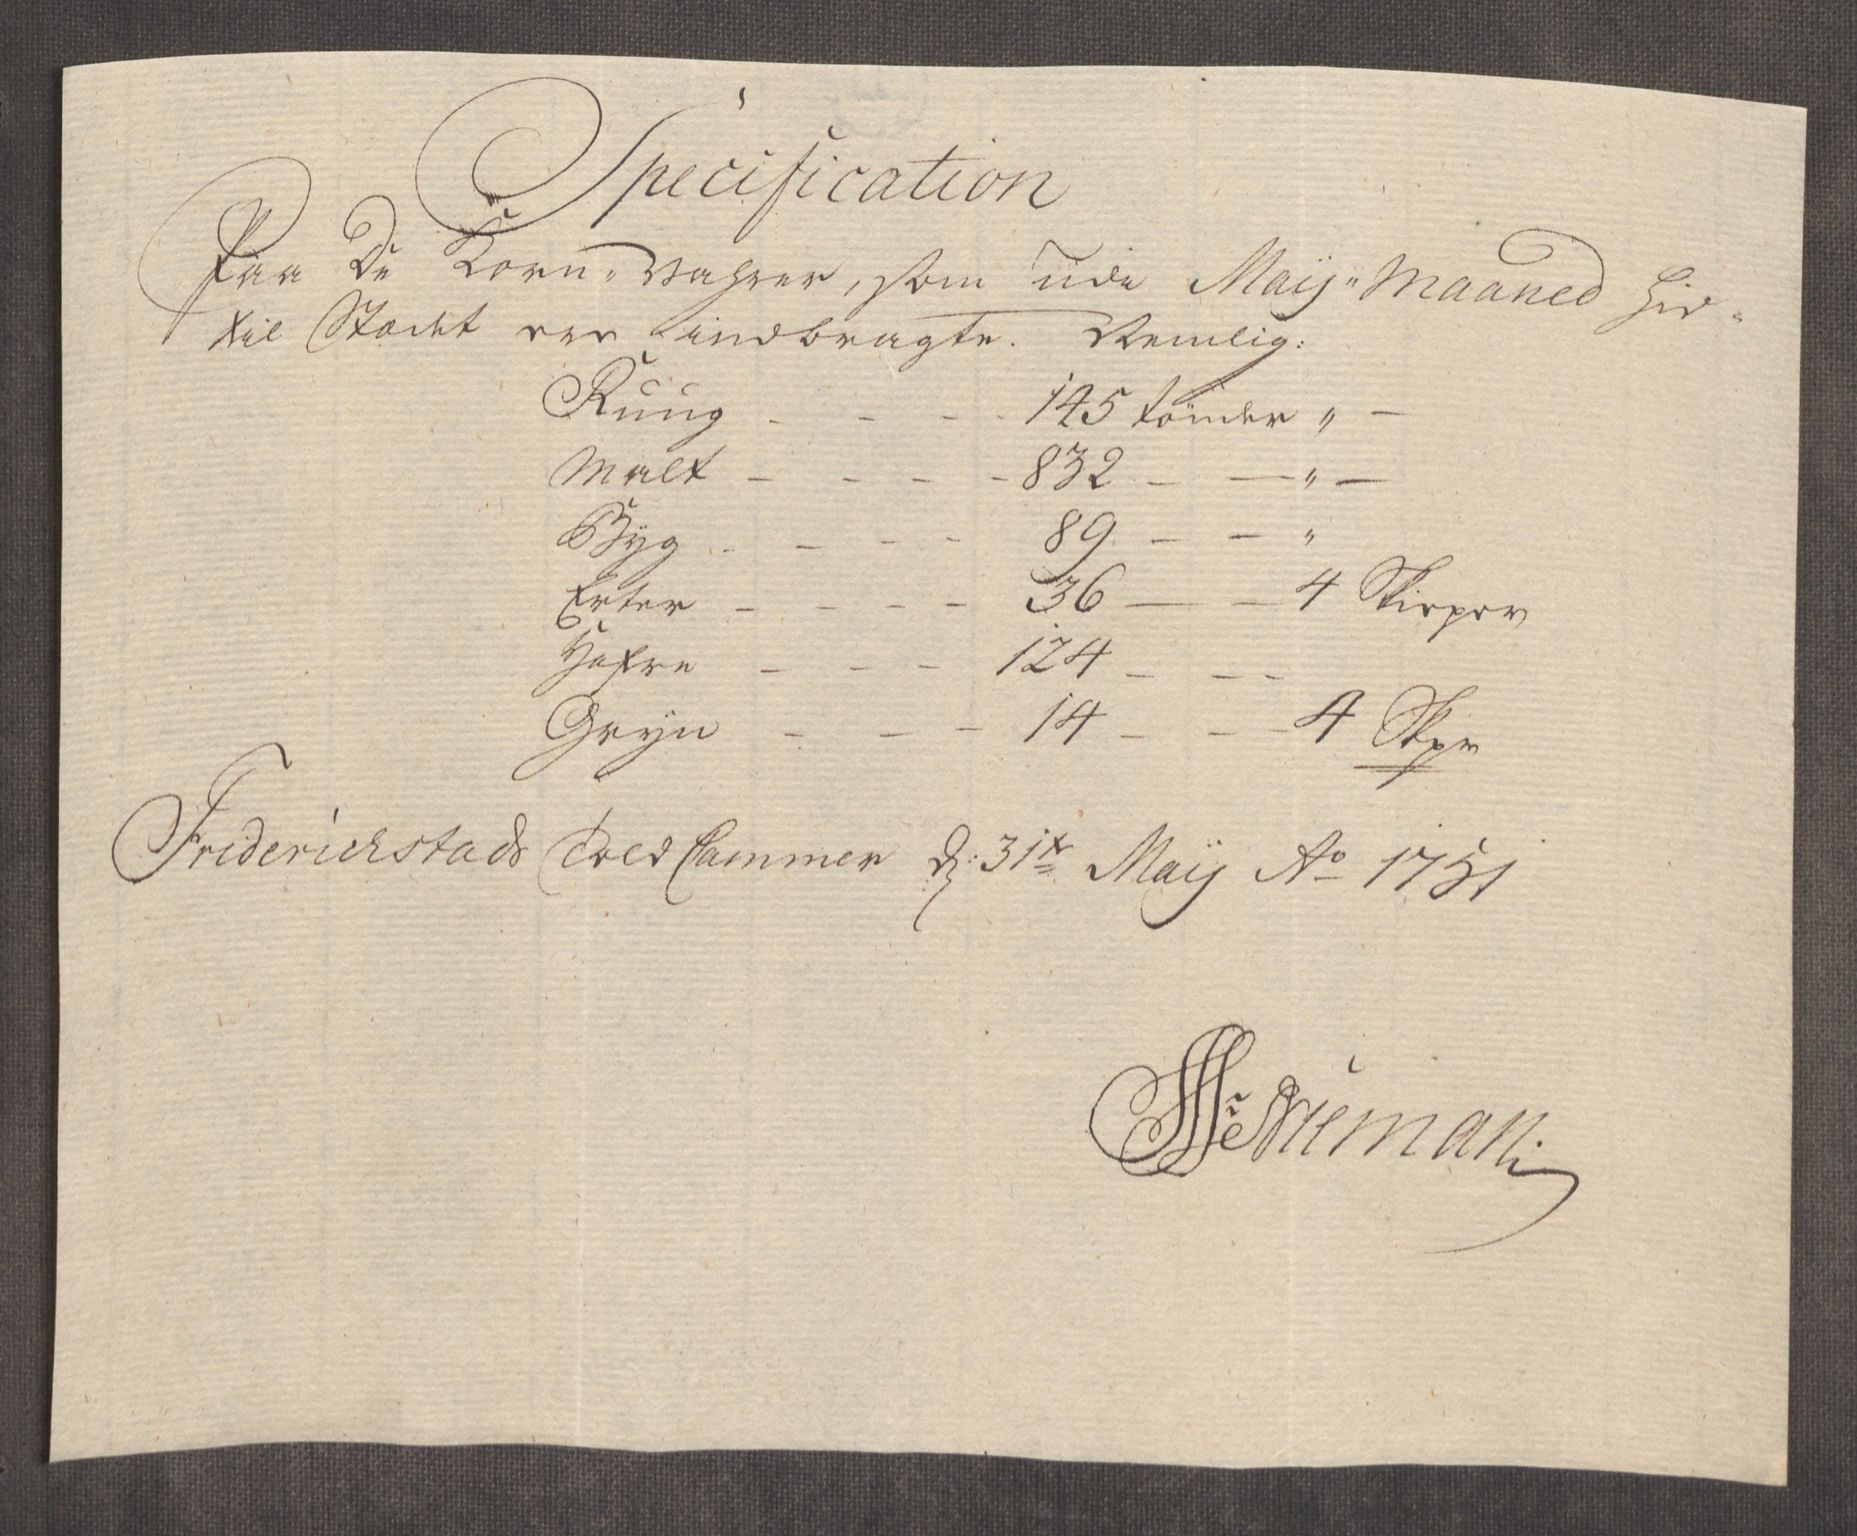 Specification
Paa De Korn-Vahrer, som udi Maÿ-Maaned hid-
til Stædet ere indbragte. Nemlig:
Ruug - - - - 145 tønder " -
Malt - - - - 832 - - " -
Byg - - - - 89 - - "
Erter - - - - 36 - - 4 Skiepper
Hafre - - - 124 - - -
Gryn - - - 14 - - - 4 Skpr
Friderichstads Told Cammer d: 31te Maÿ Ao 1751